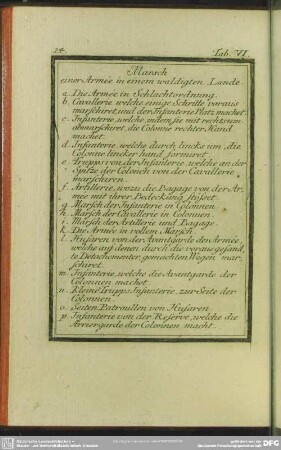 24.
Tab. VI.
Marsch
einer Armée in einem waldigten Lande
a. Die Armée in Schlachtordnung.
b. Cavallerie, welche einige Schritte voraus
marschiret und der Infanterie Platz machet
c. Infanterie, welche, indem sie mit rechts um
abmarschiret, die Colonne rechter Hand
machet.
d. Infanterie, welche durch lincks um, die
Colonne lincker hand formiret.
e. Trupps von der Infanterie, welche an der
Spitze der Colonen von der Cavallerie
marschiren.
f. Artillerie, wozu die Bagage von der Ar-
mée mit ihrer Bedeckung stösset.
g. Marsch der Infanterie in Colonnen.
h. Marsch der Cavallerie in Colonnen.
i. Marsch der Artillerie und Bagage.
k. Die Armée in vollem Marsch.
l. Husaren von der Avantgarde der Armée,
welche auf denen durch die vorausgesand-
te Detachementer, gemachten Wegen mar-
schiret.
m. Infanterie, welche die Avantgarde der
Colonnen machet.
n. Kleine Trupps Infanterie, zur Seite der
Colonnen.
o. Seiten Patrouillen von Husaren
p. Infanterie von der Reserve, welche die
Arriergarde der Colonnen macht.
DFG